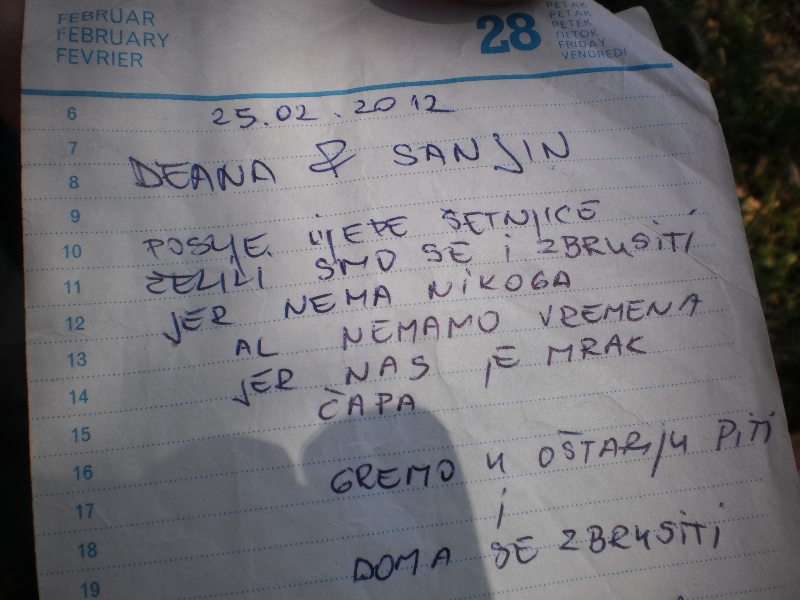 FEBRUAR
FEBRUARY
FEVRIER
28
PETAK
PETAK
PETEK
ПЕТОК
FRIDAY
VENDREDI
6 25.02.2012
7 DEANA & SANJIN
8
9
10 POSLJE LIJEPE ŠETNJICE
11 ŽELILI SMO SE I ZBRUSITI
12 JER NEMA NIKOGA
13 AL NEMAMO VREMENA
14 JER NAS JE MRAK
15 ČAPA
16 GREMO U OŠTARIJU PITI
17 I
18 DOMA SE ZBRUSITI
19